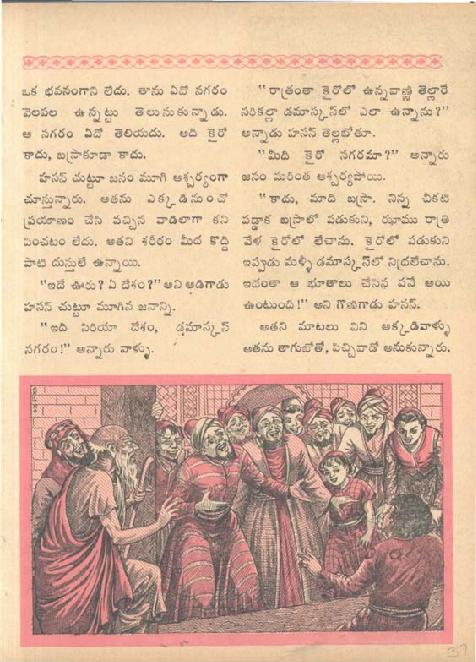 ఒక భవనంగాని లేదు. తాను ఏదో నగరం
వెలపల ఉన్నట్టు తెలుసుకున్నాడు.
ఆ నగరం ఏదో తెలియదు. అది కైరో
కాదు, బస్రాకూడా కాదు.
హసన్ చుట్టూ జనం మూగి ఆశ్చర్యంగా
చూస్తున్నారు. అతను ఎక్కడినుంచో
ప్రయాణం చేసి వచ్చిన వాడిలాగా కని
పించటం లేదు. అతని శరీరం మీద కొద్ది
పాటి దుస్తులే ఉన్నాయి.
"ఇదే ఊరు? ఏ దేశం?" అని అడిగాడు
హసన్ చుట్టూ మూగిన జనాన్ని.
"ఇది సిరియా దేశం, డమాస్కస్
నగరం!" అన్నారు వాళ్ళు.
"రాత్రంతా కైరోలో ఉన్నవాణ్ణి తెల్లారే
సరికల్లా డమాస్కస్‌లో ఎలా ఉన్నాను?"
అన్నాడు హసన్ తెల్లబోతూ.
"మీది కైరో నగరమా?" అన్నారు
జనం మరింత ఆశ్చర్యపోయి.
"కాదు, మాది బస్రా. నిన్న చీకటి
పడ్డాక బస్రాలో పడుకుని, ఝాము రాత్రి
వేళ కైరోలో లేచాను. కైరోలో పడుకుని
ఇప్పుడు మళ్ళీ డమాస్కస్‌లో నిద్రలేచాను.
ఇదంతా ఆ భూతాలు చేసిన పనే అయి
ఉంటుంది!" అని గొణిగాడు హసన్.
అతని మాటలు విని అక్కడివాళ్ళు
అతను తాగుబోతో, పిచ్చివాడో అనుకున్నారు.
37